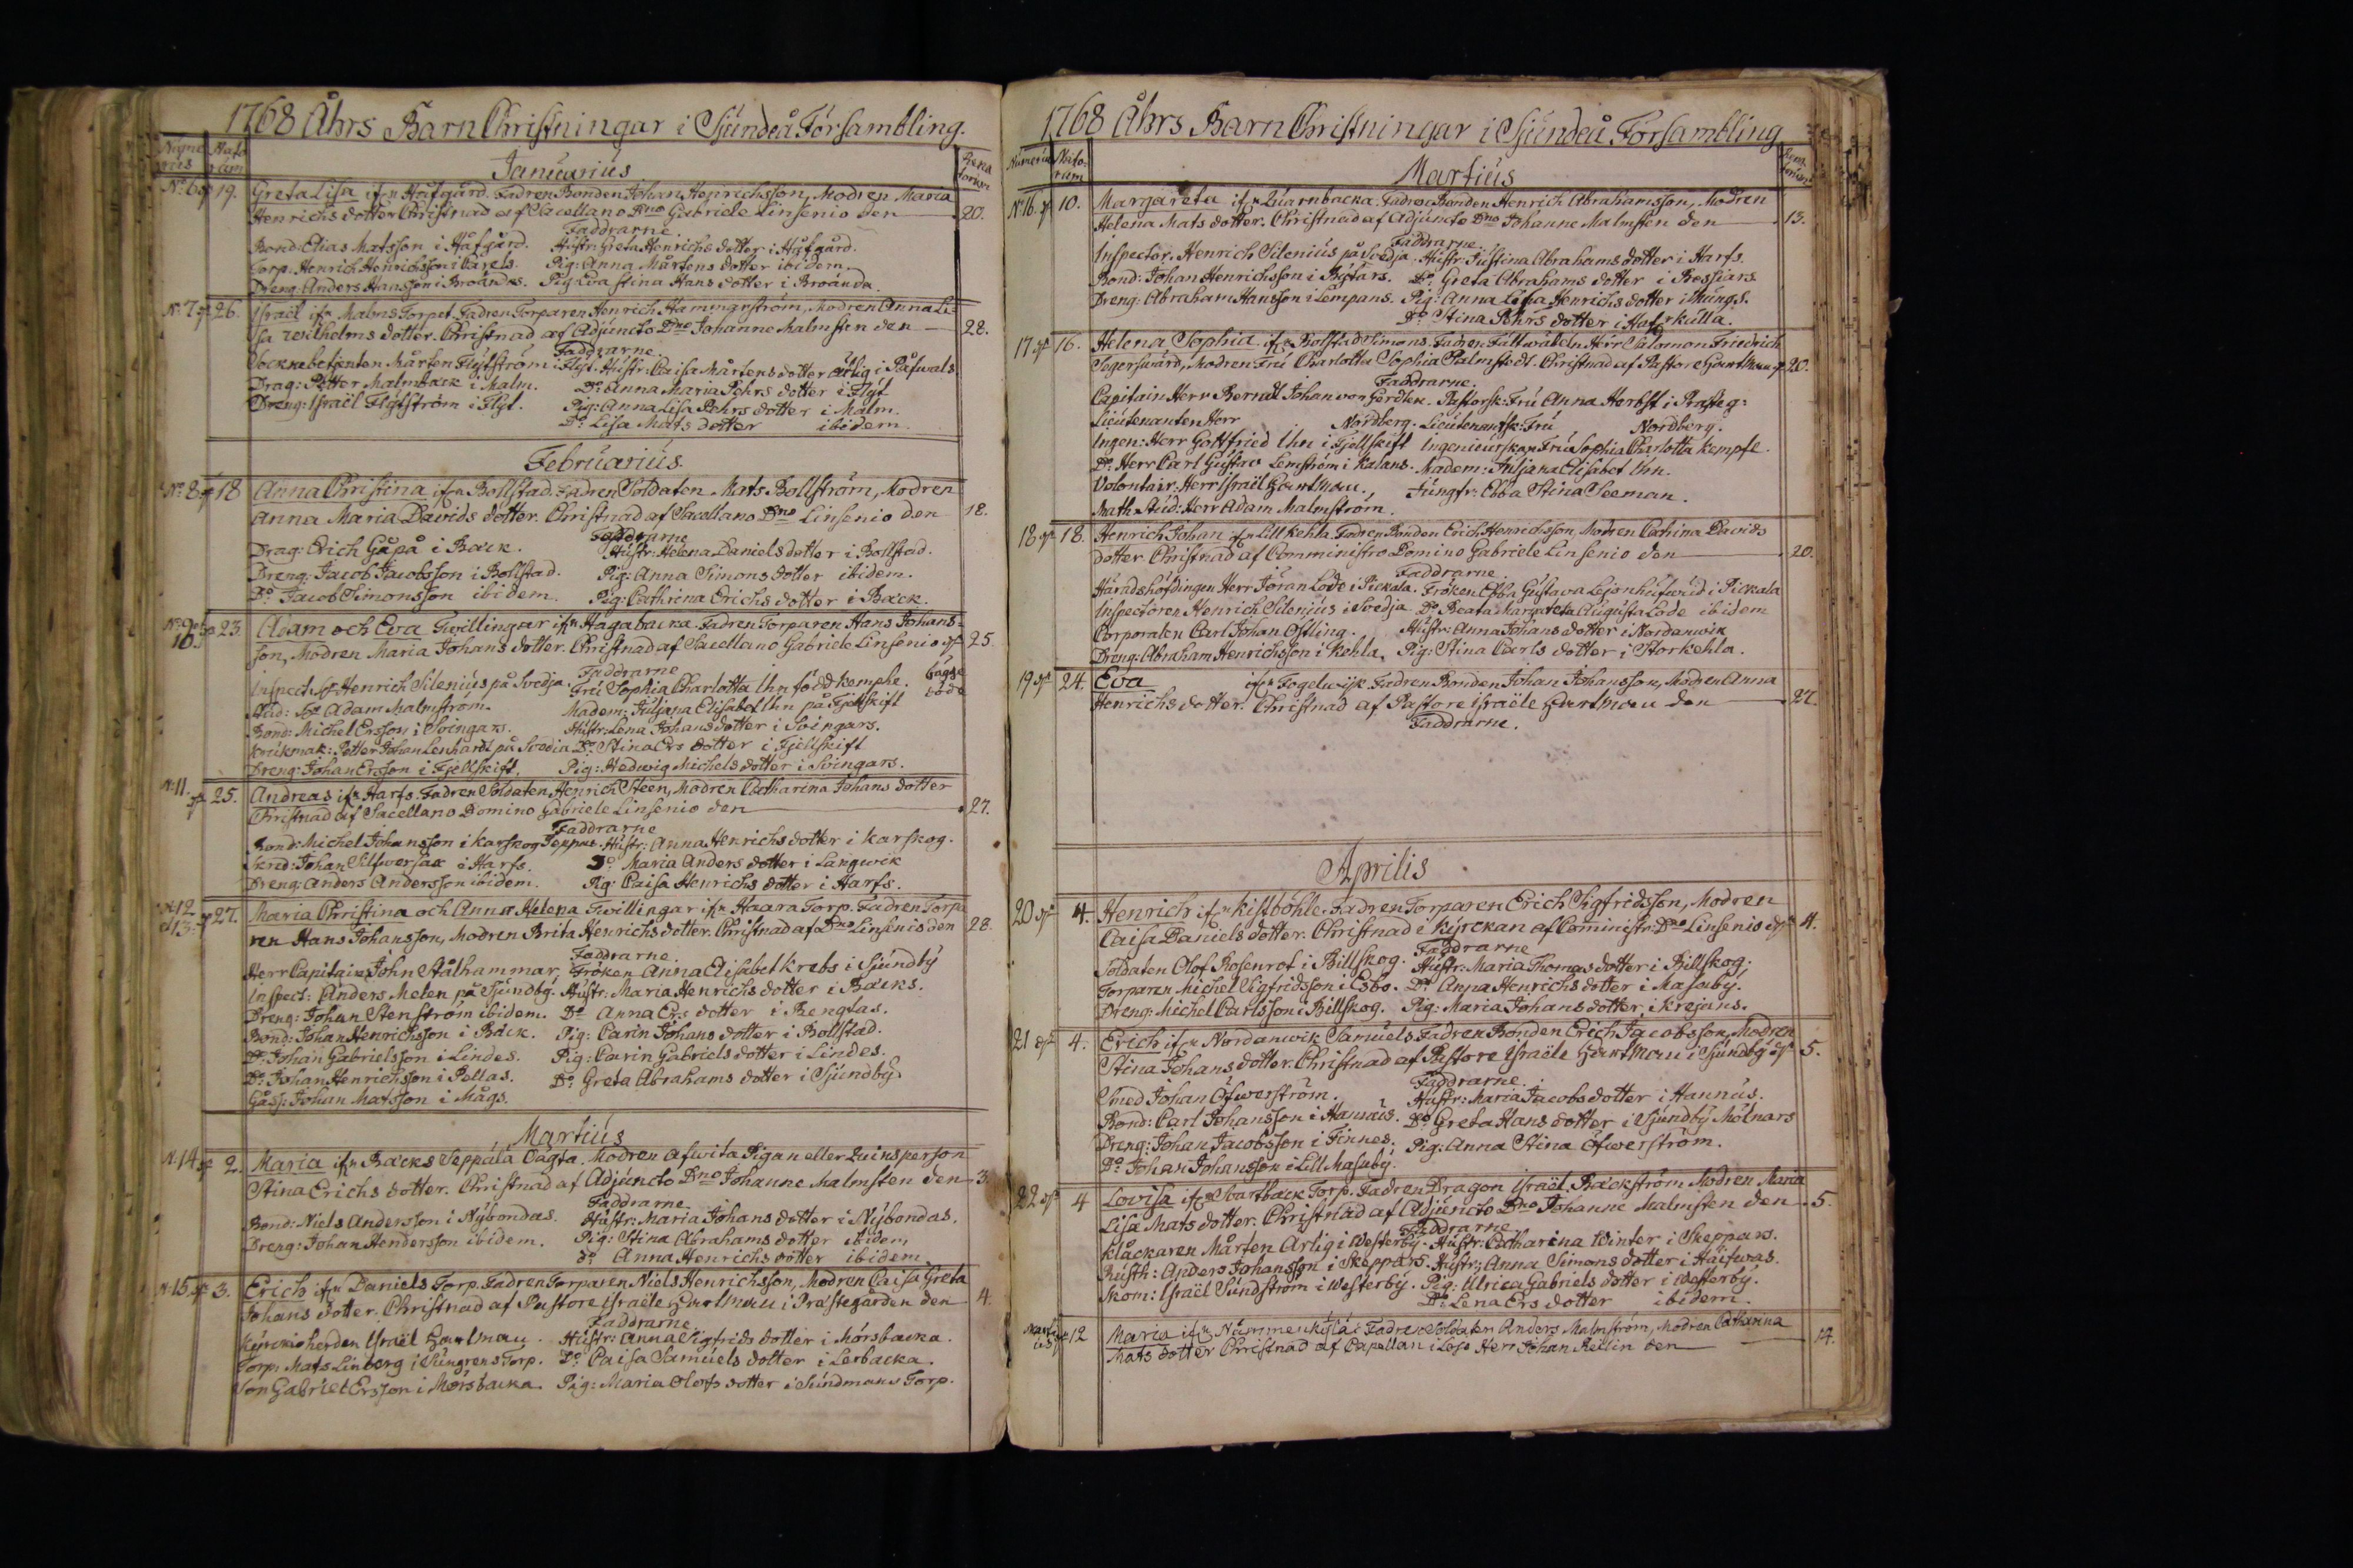 1768 Åhrs BarnChristningar i Sjundeå Försambling.
Januarius
No. 6 19. Greta Lisa ifn Håfgård. Fadren Bonden Johan Henrichsson, Modren Maria
Henrichs dotter Christnad af Sacellano Dno Gabriele Linsenio den 20.
Faddrarne.
Bond: Elias Matsson i Håfgård. Hustr: Greta Henrichs dotter i Håfgård.
Torp: Henrich Henrichsson i Carels. Pig: Anna Mårtens dotter ibidem.
Dreng: Anders Hansson i Broändas. Pig: Eva Stina Hans dotter i Broända.
No. 7 26. Israel ifn Malms Torpet. Fadren Torparen Henrich Hammarström, Modren Anna Li=
sa Wilhelms dotter. Christnad af Adjuncto Dno Johanne Malmsten den 28.
Faddrarne.
Socknebetjenten Mårten Flytström i Flyt. Hustr: Caisa Mårtens dotter ärlig i Påfwals
Drag: Petter Malmback i Malm. Do Anna Maria Pehrs dotter i Flyt
Dreng: Israël Flytström i Flyt. Pig: Anna Lisa Pehrs dotter i Malm.
Do Lisa Mats dotter ibidem.
Februarius.
No. 8 18 Anna Christina ifn Bollstad. Fadren Soldaten Mats Bollström, Modren
Anna Maria Davids dotter. Christnad af Sacellano Dno Linsenio den 18.
Faddrarne
Drag: Erich Gåpå i Back. Hustr: Helena Daniels dotter i Bollstad.
Dreng: Jacob Jacobsson i Bollstad. Pig: Anna Simons dotter ibidem.
Do Jacob Simonsson ibidem. Pig: Cathrina Erichs dotter i Back.
No. 9 10. 23. Adam och Eva Twillingar ifn Hagabacka. Fadren Torparen Hans Johans=
son, Modren Maria Johans dotter. Christnad af Sacellano Gabriele Linsenio 25.
Faddrarne
Inspect: Hr Henrich Silenius på Svedja. Fru Sophia Charlotta Ihn född Kemphe. bägge
Stud: Hr Adam Malmström. Madem: Juliana Elisabet Ihn på Fjellskift
Bond: Michel Ersson i Svingars. Hustr: Lena Johans dotter i Svingars.
Krukmak: Petter Johan Lenhardt på Svedia Do Stina Ers dotter i Fjellskift
Dreng: Johan Ersson i Fjellskift. Pig: Hedwig Michels dotter i Svingars.
N. 11. 25. Andreas ifn Harfs. Fadren Soldaten Henrich Steen, Modren Catharina Johans dotter
Christnad af Sacellano Domino Gabriele Linsenio den 27.
Faddrarne
Bond: Michel Johansson i Karskog Seppas. Hustr: Anna Henrichs dotter i Karskog.
Skred: Johan Silfwersax i Harfs. Do Maria Anders dotter i Långwik
Dreng: Anders Andersson ibidem. Pig: Caisa Henrichs dotter i Harfs.
N. 12 et 13. 27. Maria Christina och Anna Helena Twillingar ifn Haara Torp. Fadren Torpa
ren Hans Johansson, Modren Brita Henrichs dotter. Christnad af Dno Linsenio den 28.
Faddrarne.
Herr Capitain John Stålhammar, Fröken Anna Elisabet Krebs i Sjundby
Inspect: Anders Melen på Sjundby. Hustr: Maria Henrichs dotter i Backs.
Dreng: Johan Stenström ibidem. Do Anna Ers dotter i Bengtas.
Bond: Johan Henrichsson i Back. Pig: Carin Johans dotter i Bollstad.
Do Johan Gabrielsson i Lindes. Pig: Carin Gabriels dotter i Lindes.
Do Johan Henrichsson i Pellas. Do Greta Abrahams dotter i Sjundby.
Gåss: Johan Matsson i Mågs.
Martius
N. 14 2. Maria ifn Backs Seppälä Oägta. Modren Afwita Pigan eller Quinsperson
Stina Erichs dotter. Christnad af Adjuncto Dno Johanne Malmsten den 3.
Faddrarne
Bond: Niels Andersson i Nybondas. Hustr: Maria Johans dotter i Nybondas.
Dreng: Johan Hendersson ibidem. Pig: Stina Abrahams dotter ibidem
do Anna Henrichs dotter ibidem
N. 15 3. Erich ifn Daniels Torp. Fadren Torparen Niels Henrichsson, Modren Caisa Greta
Johans dotter. Christnad af Pastore Israële Hartman i Prästegården den 4.
Faddrarne
Kyrckioherden Israël Hartman. Hustr: Anna Sigfrids dotter i Mörsbacka.
Torp: Mats Linberg i Sungrens Torp. Do Caisa Samuels dotter i Lerbacka.
Son Gabriel Ersson i Mörsbacka. Pig: Maria Olofs dotter i Sundmans Torp.
1768 Åhrs BarnChristningar i Sjundeå Försambling
Martius
No. 16. 10. Margareta ifn Quarnbacka. Fadren Bonden Henrich Abrahamsson, Modren
Helena Mats dotter. Christnad af Adjuncto Dno Johanne Malmsten den 13.
Faddrarne.
Inspector. Henrich Silenius på Svedja. Hustr: Justina Abrahams dotter i Harfs.
Bond: Johan Henrichsson i Bytars. Do. Greta Abrahams dotter i Brossiars.
Dreng: Abraham Hansson i Lempans. Pig: Anna Lisa Henrichs dotter i Mungs.
Do Stina Pehrs dotter i Haf kulla.
17 16. Helena Sophia ifn Bollstad Simons. Fadren Fältwäbeln Herr Salomon Friedrich
Segersvärd, Modren Fru Charlotta Sophia Palmstedt. Christnad af Pastore Hartman 20.
Faddrarne.
Capitain Herr Berndt Johan von Gerdten. Pastorsk: Fru Anna Herbst i Prästeg:
Lieutenanten Herr Nordberg. Lieutenantsk: Fru Nordberg.
Ingen: Herr Gottfried Ihn i Fjellskift Ingenieurskan Fru Sophia Charlotta Kempfe.
Do Herr Carl Gustav Lemström i Kalans. Madem: Juljana Elisabet Ihn.
Volontair: Herr Israël Hartman. Jungfr: Ebba Stina Seeman.
Math Stud: Herr Adam Malmström.
18 18. Henrich Johan ifn Lill Kehla. Fadren Bonden Erich Henrichsson, Modren Cathrina Davids
dotter Christnad af Comministro Domino Gabriele Linsenio den 20.
Faddrarne
Häradshöfdingen Herr Jöran Lode i Pickala. Fröken Ebba Gustava Lejonhufwud i Pickala
Inspectoren Henrich Silenius i Svedja. Do Beata Margareta Augusta Lode ibidem
Corporalen Carl Johan Ostling. Hustr: Anna Johans dotter i Nordanwik
Dreng: Abraham Henrichsson i Kehla. Pig: Stina Carls dotter i Storkehla.
19 24. Eva ifn Fogelwijk. Fadren Bonden Johan Johansson, Modren Anna
Henrichs dotter. Christnad af Pastore Israële Hartman den 27.
Faddrarne.
Aprilis
20 4. Henrich ifn Kistböhle. Fadren Torparen Erich Sigfridsson, Modren
Caisa Daniels dotter. Christnad i Kyrckan af Cominist: Dno Linsenio 4.
Faddrarne
Soldaten Olof Rosenrot i Billskog. Hustr: Maria Thomas dotter i Billskog.
Torparen Michel Sigfridsson i Esbo. Do Anna Henrichs dotter i Masaby.
Dreng: Michel Carlsson i Billskog. Pig: Maria Johans dotter i Krejans.
21 4. Erich ifn Nordanwik Samuels. Fadren Bonden Erich Jacobsson, Modren
Stina Johans dotter. Christnad af Pastore Israële Hartman i Sjundby 5.
Faddrarne.
Smed Johan Öfwerström. Hustr: Maria Jacobs dotter i Hannus.
Bond: Carl Johansson i Hannus. Do Greta Hans dotter i Sjundby Mölnars
Dreng: Johan Jacobsson i Finnes. Pig: Anna Stina Öfwerström.
Do Johan Johansson i Lill Masuby.
22 4 Lovisa ifn Svartback Torp. Fadren Dragon Israël Backström Modren Maria
Lisa Mats dotter. Christnad af Adjuncto Dno Johanne Malmsten den 5.
Faddrarne
Klåckaren Mårten Ärlig i Westerby. Hustr: Catharina Winter i Skeppars.
Rusth: Anders Johansson i Skeppars. Hustr: Anna Simons dotter i Haifwas.
Skom: Israël Sundström i Westerby. Pig: Ulrica Gabriels dotter i Westerby.
Do Lena Ers dotter ibidem.
12 Maria ifn Nummenkylä: Fadren Soldaten Anders Malmström, Modren Catharina
Mats dotter Christnad af Capellan i Lojo Herr Johan Rellin den 14.